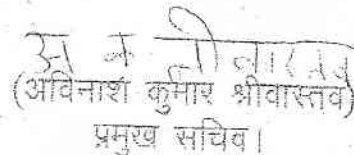 (अविनाश कुमार श्रीवास्तव)
प्रमुख सचिव।